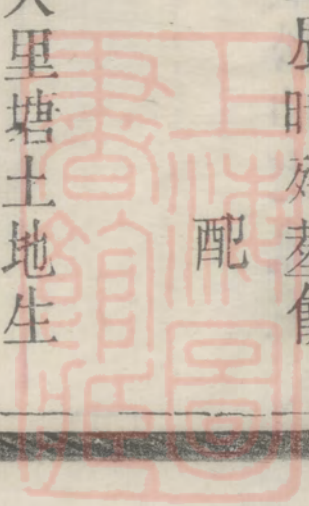 時
配
里塘土地生
上海圖
書館藏